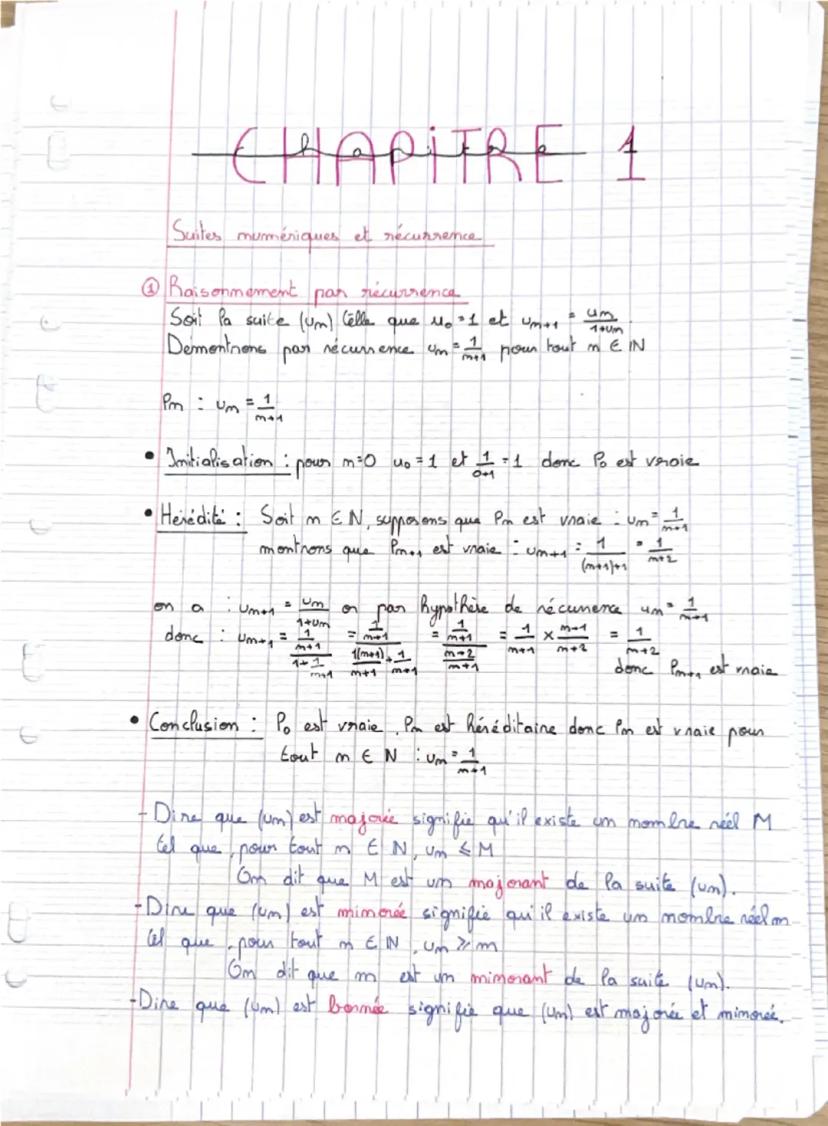 CHAPiTRE 1
chapitre
Suites numériques et récurrence
① Raisonnement par récurrence
Soit la suite (un) telle que u₀ = 1 et un+1 = un/(1+un).
Démontrons par récurrence un = 1/(n+1) pour tout n ∈ IN
Pn : un = 1/(n+1)
• Initialisation : pour n=0 u₀ = 1 et 1/(0+1) = 1 donc P₀ est vraie
• Hérédité : Soit n ∈ N, supposons que Pn est vraie : un = 1/(n+1)
montrons que Pn+1 est vraie : un+1 = 1/((n+1)+1) = 1/(n+2)
on a : un+1 = un/(1+un) or par hypothèse de récurrence un = 1/(n+1)
donc : un+1 = (1/(n+1))/(1+1/(n+1)) = (1/(n+1))/(1(n+1)/(n+1) + 1/(n+1)) = (1/(n+1))/((n+2)/(n+1)) = 1/(n+1) × (n+1)/(n+2) = 1/(n+2)
donc Pn+1 est vraie
• Conclusion : P₀ est vraie, Pn est héréditaire donc Pn est vraie pour
tout n ∈ N : un = 1/(n+1)
- Dire que (un) est majorée signifie qu'il existe un nombre réel M
tel que, pour tout n ∈ N, un ⩽ M
On dit que M est un majorant de la suite (un).
- Dire que (un) est minorée signifie qu'il existe un nombre réel m
tel que, pour tout n ∈ IN, un ⩾ m
On dit que m est un minorant de la suite (un).
- Dire que (un) est bornée signifie que (un) est majorée et minorée.